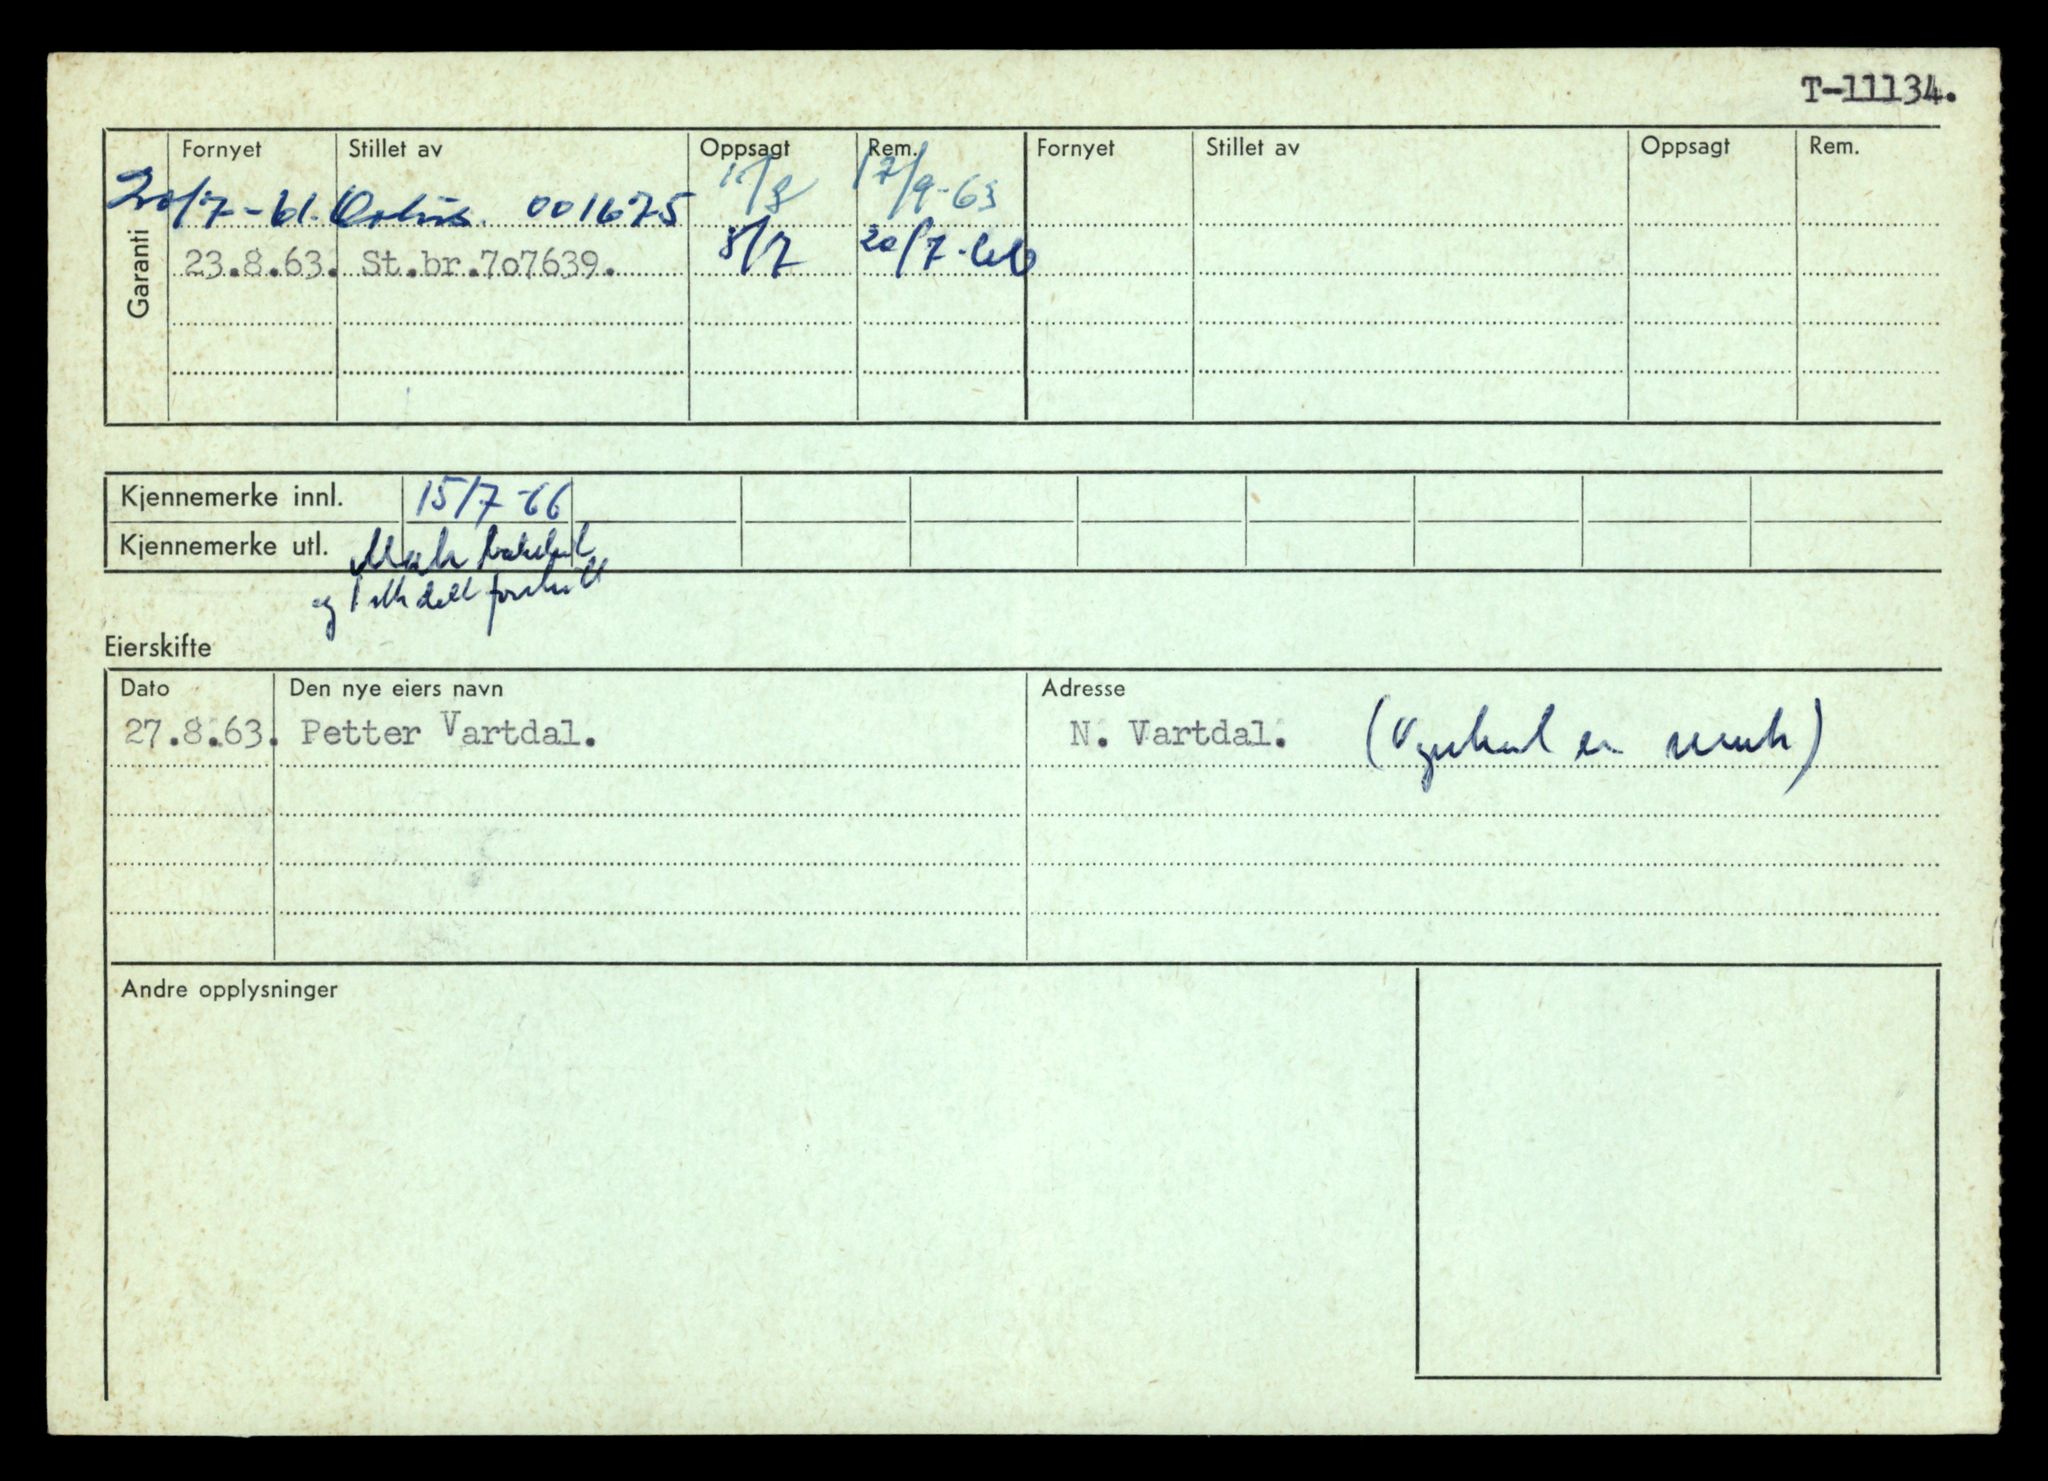 T-11134.
Garanti
Fornyet Stillet av Oppsagt Rem. Fornyet Stillet av Oppsagt Rem.
20/7- 001675 17/9-63
23.8.63. St.br.707639. 8/7 20/7-66
Kjennemerke innl. 15/7-66
Kjennemerke utl.
og
Eierskifte
Dato Den nye eiers navn Adresse
27.8.63. Petter Vartdal. N. Vartdal.
Andre opplysninger